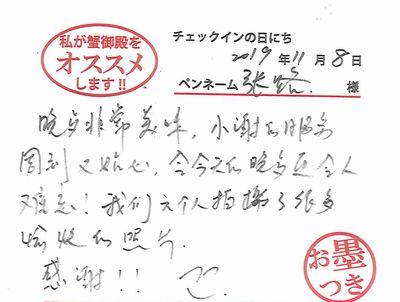 私が蟹御殿を
オススメ
します!!
チェックインの日にち
2019年11月8日
ペンネーム 张 様
晚多非常美味,小谢的服务
周到又贴心,令今天的晚 令人
难忘!我们六个人拍摄了很多
愉快的照片.
感谢!!
お墨
つき